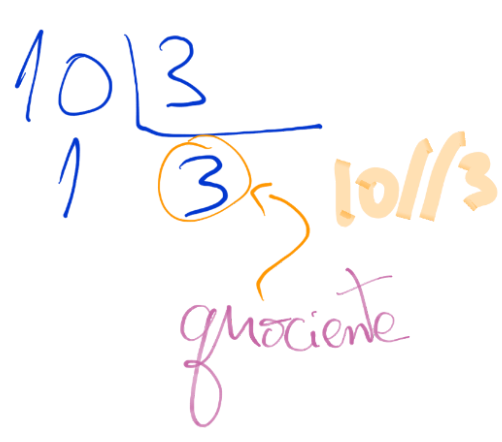 10 3
1 3
10//3
quociente